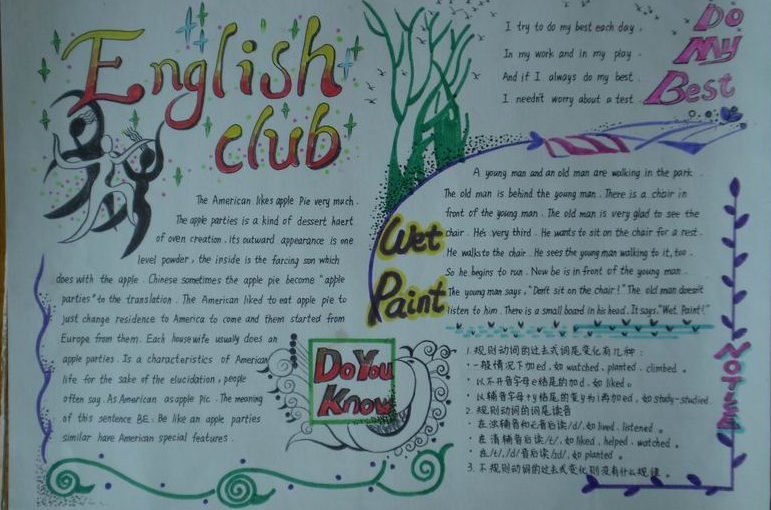 English
club
The American likes apple Pie very much.
The apple parties is a kind of dessert haert
of oven creation. its outward appearance is one
level powder, the inside is the farcing son which
does with the apple. Chinese sometimes the apple pie become "apple
parties" to the translation. The American liked to eat apple pie to
just change residence to America to come and them started from
Europe from them. Each housewife usually does an
apple parties. Is a characteristics of American
life for the sake of the elucidation, people
often say. As American as apple pic. The meaning
of this sentence BE: Be like an apple parties
similar hare American special features.
Do You
Know
Do
My
Best
I try to do my best each day.
In my work and in my play.
And if I always do my best.
I needn't worry about a test.
Wet
Paint
A young man and an old man are walking in the park.
The old man is behind the young man. There is a chair in
front of the young man. The old man is very glad to see the
chair. He's very third. He wants to sit on the chair for a rest.
He walks to the chair. He sees the young man walking to it, too.
So he begins to run. Now be is in front of the young man.
The young man says, "Don't sit on the chair!" The old man doesn't
listen to him. There is a small board in his bead. It says. "Wet Paint!"
1. 规则动词的过去式词尾变化有几种:
· 一般情况下加ed, 如 watched, planted. climbed。
· 以不开音字母e结尾的加d, 如 liked。
· 以辅音字母+y结尾的变y为i再加ed, 如study-studied.
2. 规则动词的词尾读音
· 在浊辅音和元音后读/d/. 如 lived. listened。
· 在清辅音后读/t/, 如 liked, helped. watched。
· 在/t/, /d/音后读/id/, 如 planted。
3. 不规则动词的过去式变化则没有什么规律。